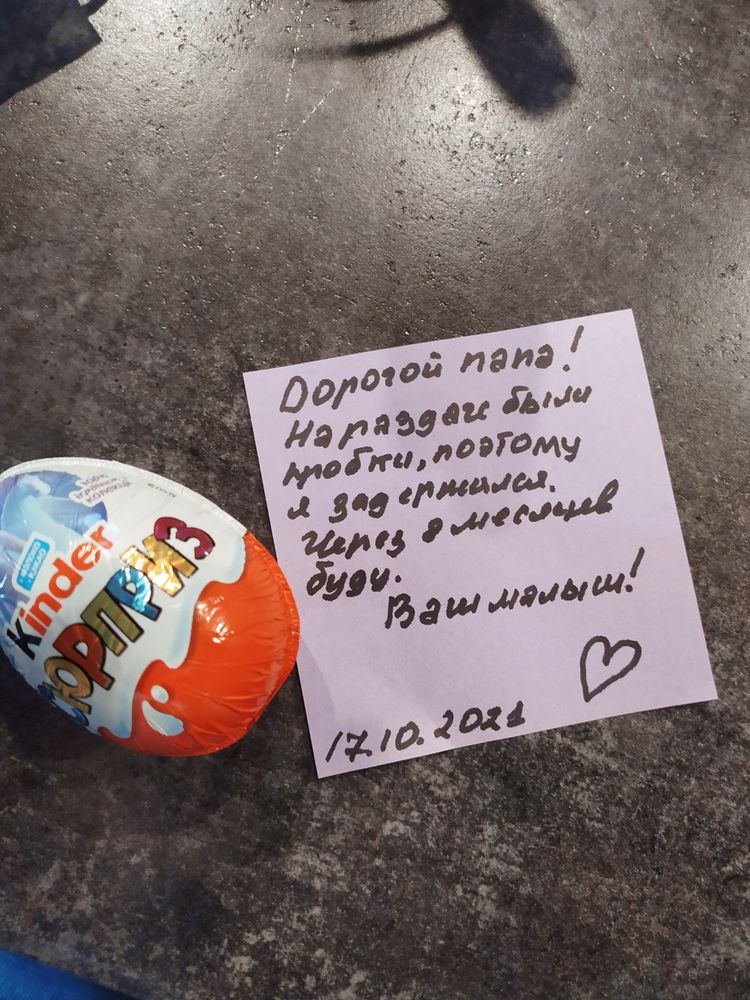 Дорогой папа!
На раздаче были
пробки, поэтому
я задержился.
Через 8 месяцев
буду.
Ваш малыш!
17.10.2021
Kinder
СЮРПРИЗ